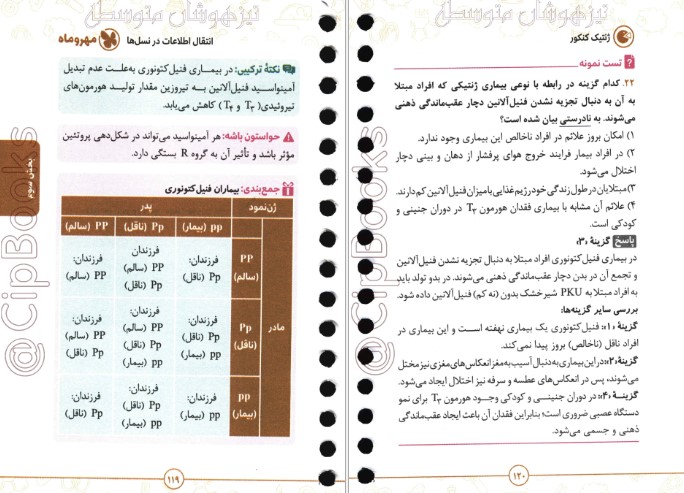 تیزهوشان متوسطه
انتقال اطلاعات در نسل‌ها
مهروماه
نکتهٔ ترکیبی: در بیماری فنیل‌کتونوری به‌علت عدم تبدیل
آمینواسید فنیل‌آلانین به تیروزین مقدار تولید هورمون‌های
تیروئیدی (T۳ و T۴) کاهش می‌یابد.
حواستون باشه: هر آمینواسید می‌تواند در شکل‌دهی پروتئین
مؤثر باشد و تأثیر آن به گروه R بستگی دارد.
جمع‌بندی: بیماران فنیل‌کتونوری
ژن‌نمود
پدر
pp (بیمار)
Pp (ناقل)
PP (سالم)
مادر
PP
(سالم)
فرزندان:
Pp (ناقل)
فرزندان
PP (سالم)
Pp (ناقل)
فرزندان:
PP (سالم)
Pp
(ناقل)
فرزندان:
Pp (ناقل)
pp (بیمار)
فرزندان:
PP (سالم)
Pp (ناقل)
pp (بیمار)
فرزندان:
PP (سالم)
Pp (ناقل)
pp
(بیمار)
فرزندان:
pp (بیمار)
فرزندان:
Pp (ناقل)
pp (بیمار)
فرزندان:
Pp (ناقل)
بخش سوم
@CipBooks
۱۱۹
تیزهوشان متوسطه
ژنتیک کنکور
تست نمونه
۲۲. کدام گزینه در رابطه با نوعی بیماری ژنتیکی که افراد مبتلا
به آن به دنبال تجزیه نشدن فنیل‌آلانین دچار عقب‌ماندگی ذهنی
می‌شوند، به نادرستی بیان شده است؟
۱) امکان بروز علائم در افراد ناخالص این بیماری وجود ندارد.
۲) در افراد بیمار فرایند خروج هوای پرفشار از دهان و بینی دچار
اختلال می‌شود.
۳) مبتلایان در طول زندگی خود رژیم غذایی با میزان فنیل‌آلانین کم دارند.
۴) علائم آن مشابه با بیماری فقدان هورمون T۳ در دوران جنینی و
کودکی است.
پاسخ گزینهٔ «۳»
در بیماری فنیل‌کتونوری افراد مبتلا به دنبال تجزیه نشدن فنیل‌آلانین
و تجمع آن در بدن دچار عقب‌ماندگی ذهنی می‌شوند. در بدو تولد باید
به افراد مبتلا به PKU شیرخشک بدون (نه کم) فنیل‌آلانین داده شود.
بررسی سایر گزینه‌ها:
گزینهٔ «۱»: فنیل‌کتونوری یک بیماری نهفته است و این بیماری در
افراد ناقل (ناخالص) بروز پیدا نمی‌کند.
گزینهٔ «۲»: در این بیماری به دنبال آسیب به مغز انعکاس‌های مغزی نیز مختل
می‌شوند، پس در انعکاس‌های عطسه و سرفه نیز اختلال ایجاد می‌شود.
گزینهٔ «۴»: در دوران جنینی و کودکی وجود هورمون T۳ برای نمو
دستگاه عصبی ضروری است؛ بنابراین فقدان آن باعث ایجاد عقب‌ماندگی
ذهنی و جسمی می‌شود.
@CipBooks
۱۲۰